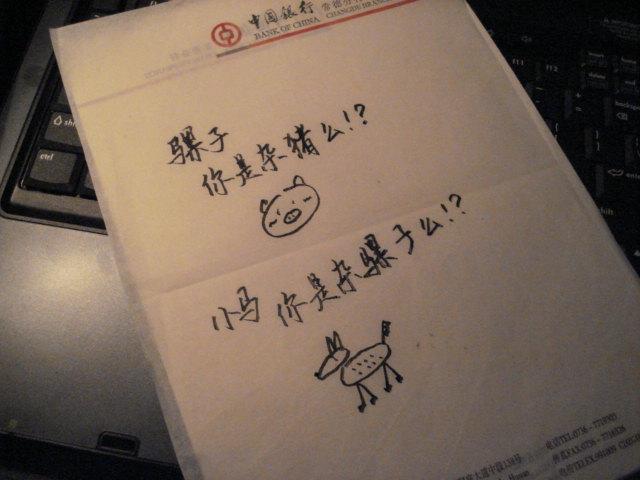 中国银行 常德分行
BANK OF CHINA CHANGDE BRANCH
骡子
你是杂猪么!?
小马 你是杂骡子么!?
电话TEL:0736-
传真FAX:0736-
电传TELEX:
ctrl
F11
F12
enter
shift